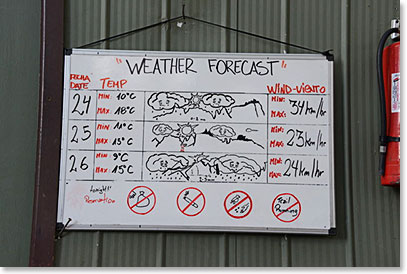 "WEATHER FORECAST"
FECHA DATE TEMP WIND-VIENTO
24 MIN: 10°C MAX: 18°C MIN: MAX: 34 km/hr
25 MIN: 11°C MAX: 15°C MIN: MAX: 23 km/hr
26 MIN: 9°C MAX: 15°C MIN: MAX: 24 km/hr
Trail Running